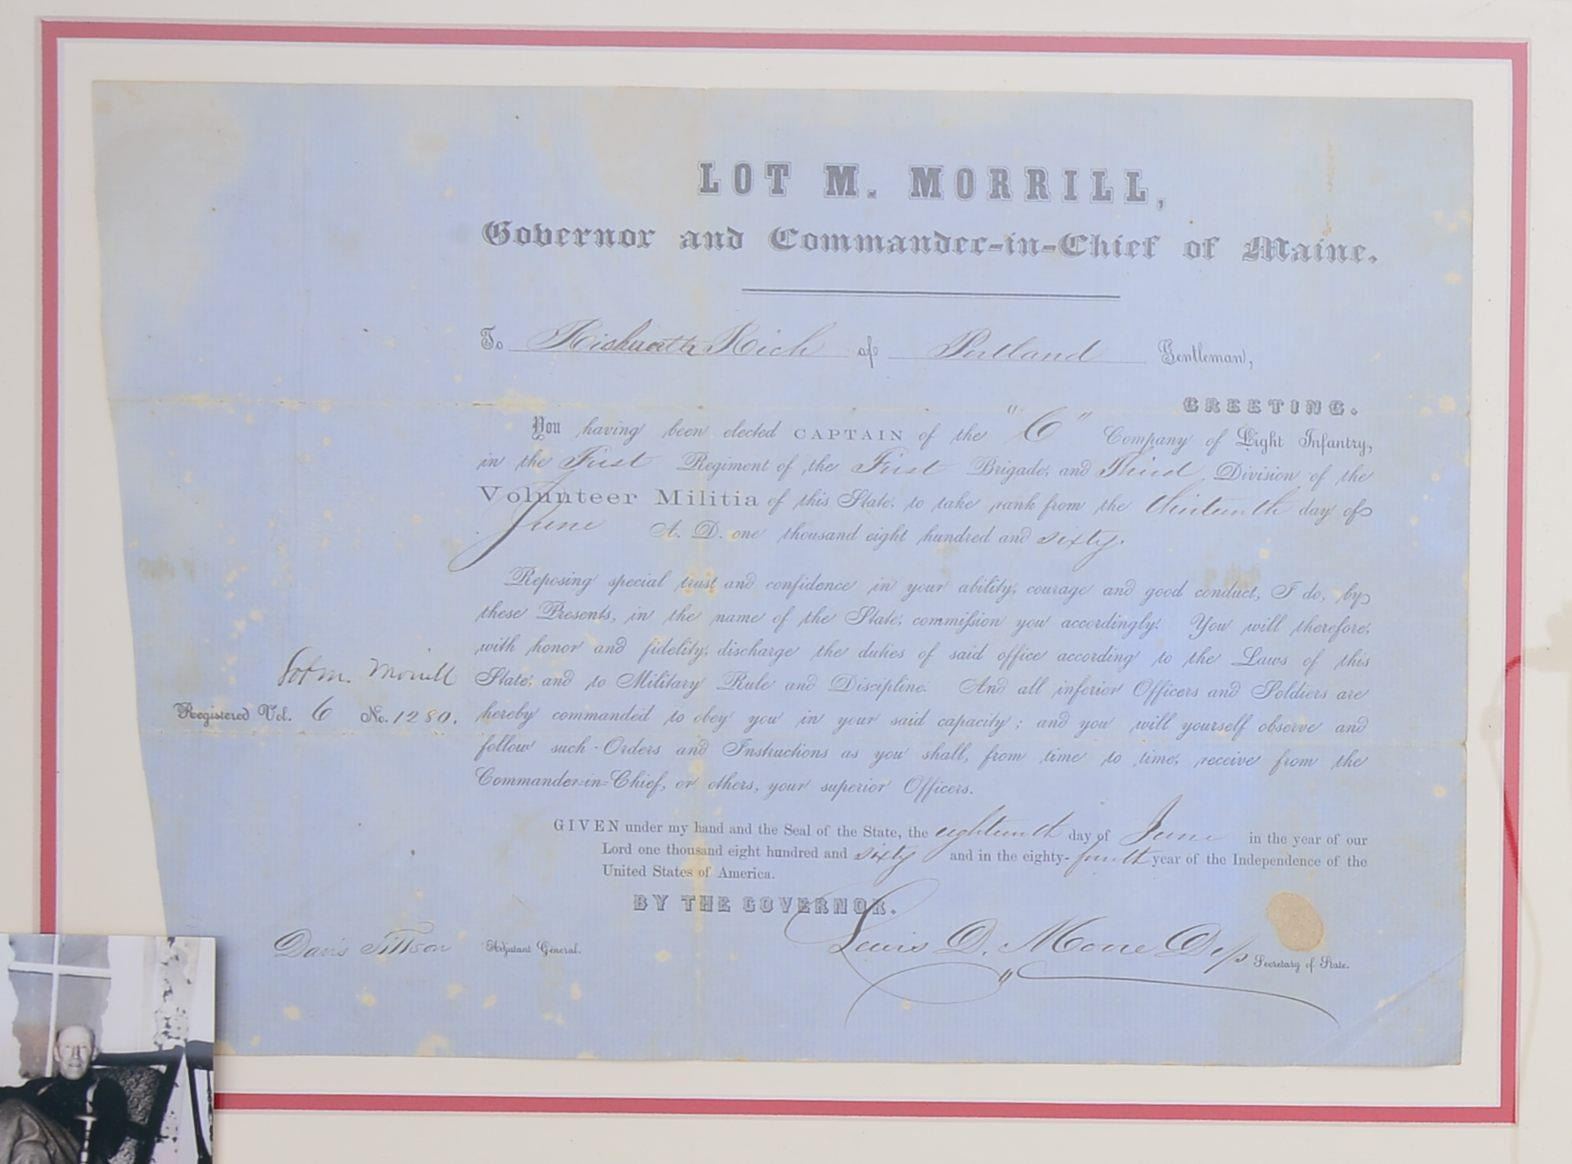 LOT M. MORRILL,
Governor and Commander-in-Chief of Maine.
To Rishworth Rich of Portland Gentleman,
GREETING.
You having been elected CAPTAIN of the "C" Company of Light Infantry,
in the First Regiment of the First Brigade, and Third Division of the
Volunteer Militia of this State, to take rank from the thirteenth day of
June A. D. one thousand eight hundred and sixty.
Reposing special trust and confidence in your ability, courage and good conduct, I do, by
these Presents, in the name of the State, commission you accordingly. You will therefore,
with honor and fidelity, discharge the duties of said office according to the Laws of this
State, and to Military Rule and Discipline. And all inferior Officers and Soldiers are
hereby commanded to obey you in your said capacity; and you will yourself observe and
follow such Orders and Instructions as you shall, from time to time, receive from the
Commander-in-Chief, or others, your superior Officers.
Lot M. Morrill
Registered Vol. 6 No. 1280.
GIVEN under my hand and the Seal of the State, the eighteenth day of June in the year of our
Lord one thousand eight hundred and sixty and in the eighty-fourth year of the Independence of the
United States of America.
BY THE GOVERNOR.
Davis Tillson Adjutant General.
Lewis D. Moore Dep Secretary of State.